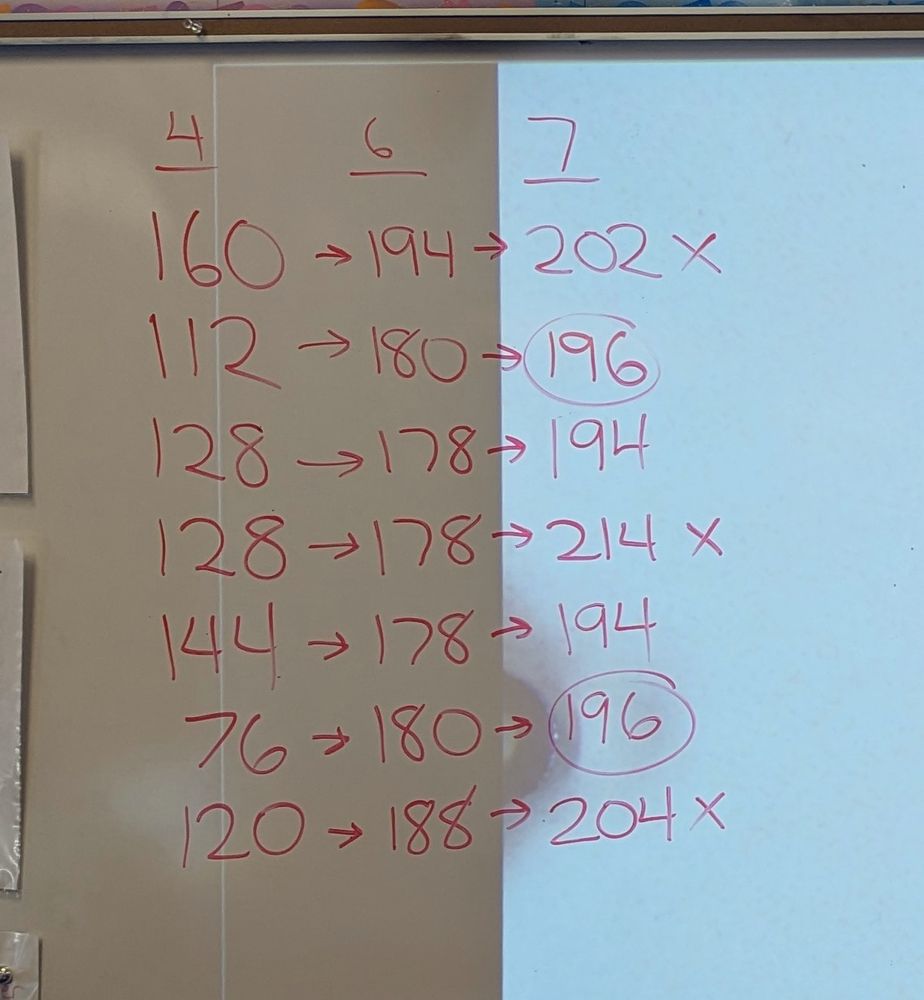 4 6 7
160 → 194 → 202 x
112 → 180 → 196
128 → 178 → 194
128 → 178 → 214 x
144 → 178 → 194
76 → 180 → 196
120 → 188 → 204 x